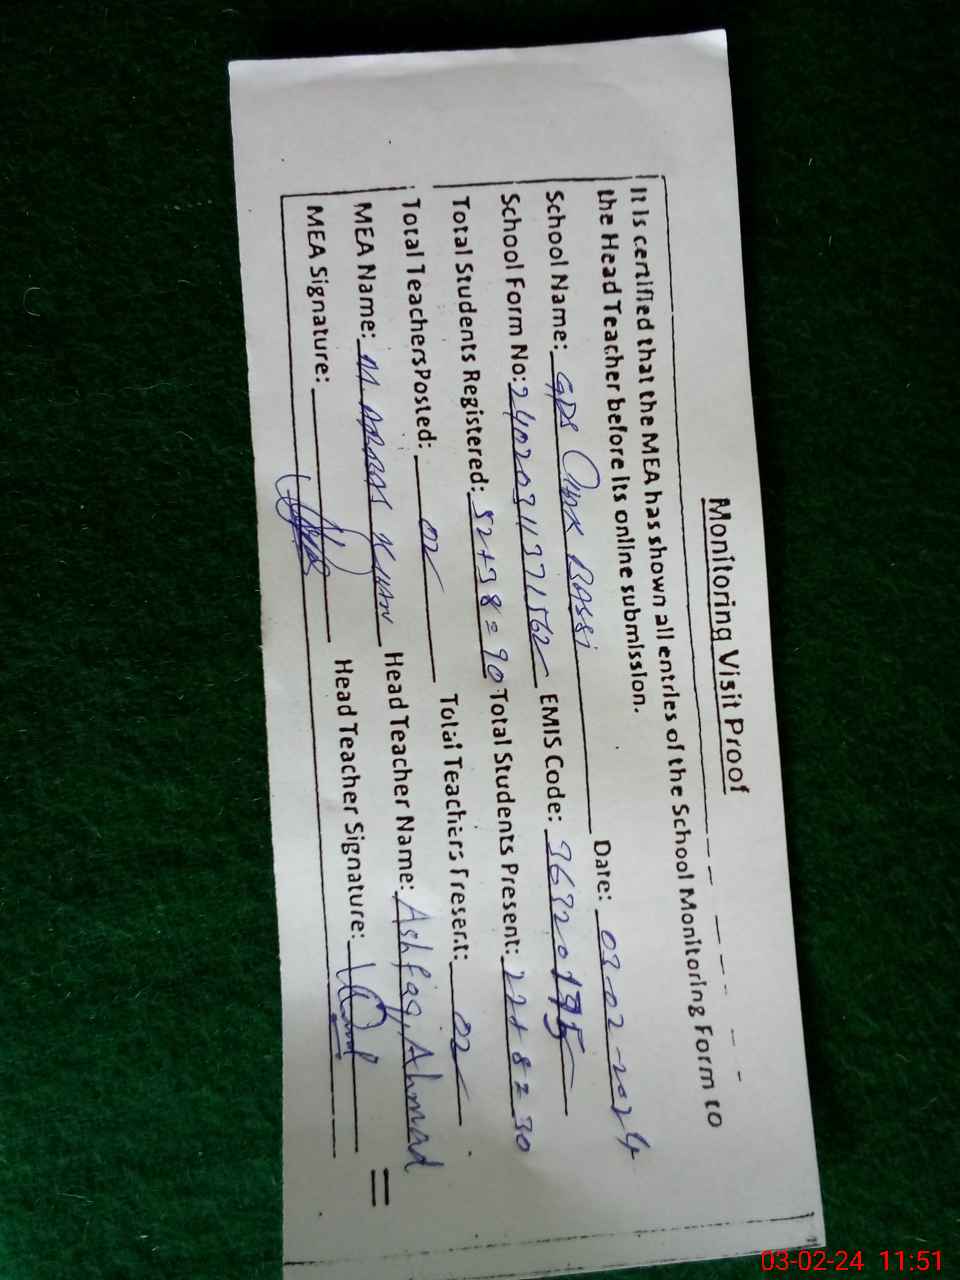 Monitoring Visit Proof
It is certified that the MEA has shown all entries of the School Monitoring Form to
the Head Teacher before its online submission.
School Name: GPS Chak BASSI Date: 03-02-2024
School Form No: 2402031371562 EMIS Code: 36320195
Total Students Registered: 52+38=90 Total Students Present: 22+8=30
Total Teachers Posted: 02 Total Teachers Present: 02
MEA Name: M ABBAS KHAN Head Teacher Name: Ashfaq Ahmad
MEA Signature: Head Teacher Signature:
03-02-24 11:51